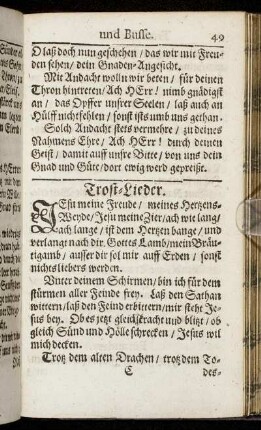 und Busse. 49
O laß doch nun geschehen / das wir mit Freu-
den sehen / dein Gnaden-Angesicht.
Mit Andacht wolln wir beten / für deinen
Thron hintreten / Ach HErr! nimb gnädigst
an / das Opffer unsrer Seelen / laß auch an
Hülff nicht fehlen / sonst ists umb uns gethan.
Solch Andacht stets vermehre / zu deines
Nahmens Ehre / Ach HErr! durch deinen
Geist / damit auff unsre Bitte / von uns dein
Gnad und Güte / dort ewig werd gepreißt.
Trost-Lieder.
JEsu meine Freude / meines Hertzens-
Weyde / Jesu meine Zier / ach wie lang /
ach lange / ist dem Hertzen bange / und
verlangt nach dir. Gottes Lamb / mein Bräu-
tigamb / ausser dir sol mir auff Erden / sonst
nichts liebers werden.
Unter deinem Schirmen / bin ich für dem
stürmen aller Feinde frey. Laß den Sathan
wittern / laß den Feind erbittern / mir steht Je-
sus bey. Ob es jetzt gleich kracht und blitzt / ob
gleich Sünd und Hölle schrecken / Jesus wil
mich decken.
Trotz dem alten Drachen / trotz dem To-
C des-